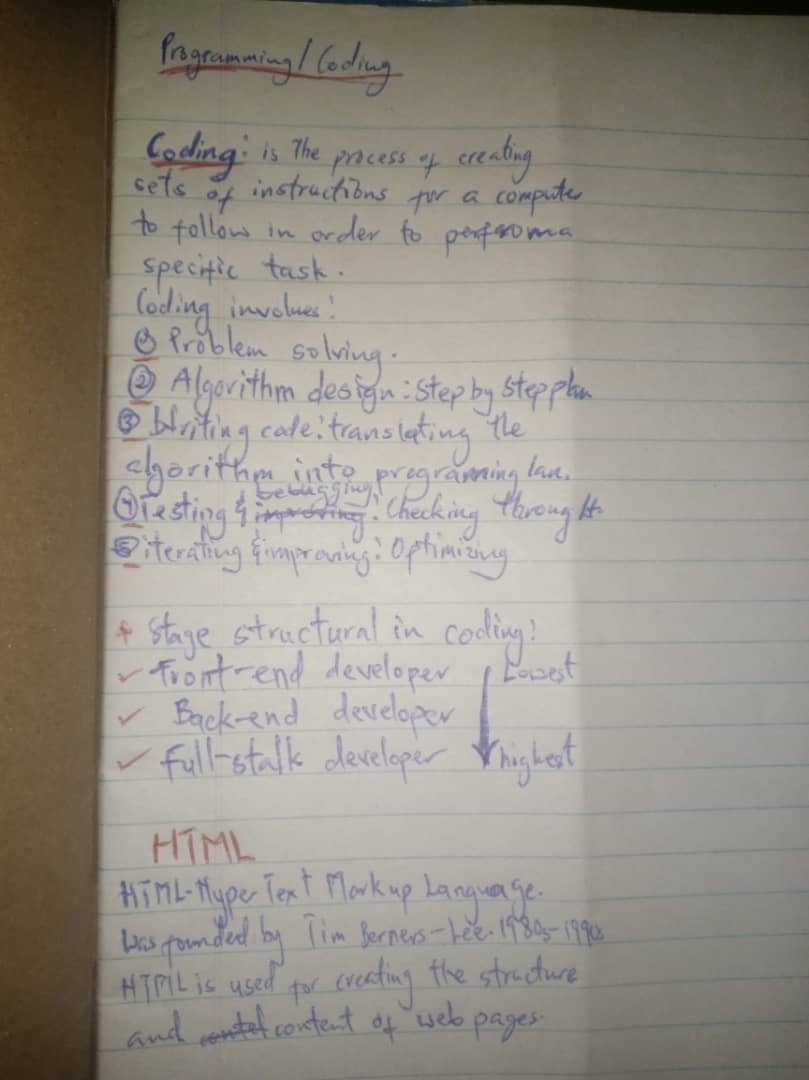 Programming/Coding
Coding: is The process of creating
sets of instructions for a computer
to follow in order to perform a
specific task.
Coding involves:
① Problem solving.
② Algorithm design: Step by step plan
③ Writing code: translating the
algorithm into programming lan.
④ Testing & debugging: Checking through
⑤ iterating & improving: Optimizing
+ Stage structural in coding:
✓ Front-end developer Lowest
✓ Back-end developer
✓ Full-stalk developer highest
HTML
HTML-Hyper Text Markup Language.
Was founded by Tim Berners-Lee. 1980s-1990s
HTML is used for creating the structure
and content of web pages.